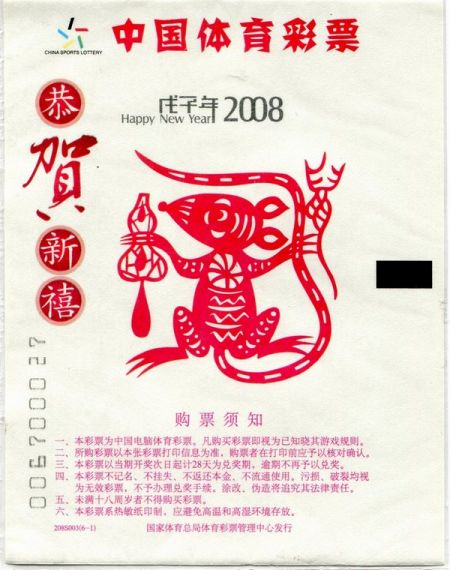 中国体育彩票
CHINA SPORTS LOTTERY
戊子年 2008
Happy New Year
恭
贺
新
禧
0067000027
购票须知
一、本彩票为中国电脑体育彩票。凡购买彩票即视为已知晓其游戏规则。
二、所购彩票以本张彩票打印信息为准，购票者在打印前应予以核对确认。
三、本彩票以当期开奖次日起计28天为兑奖期，逾期不再予以兑奖。
四、本彩票不记名、不挂失、不返还本金、不流通使用。污损、破裂均视
为无效彩票，不予办理兑奖手续。涂改、伪造将追究其法律责任。
五、未满十八周岁者不得购买彩票。
六、本彩票系热敏纸印制，应避免高温和高湿环境存放。
208S003(6-1)
国家体育总局体育彩票管理中心发行